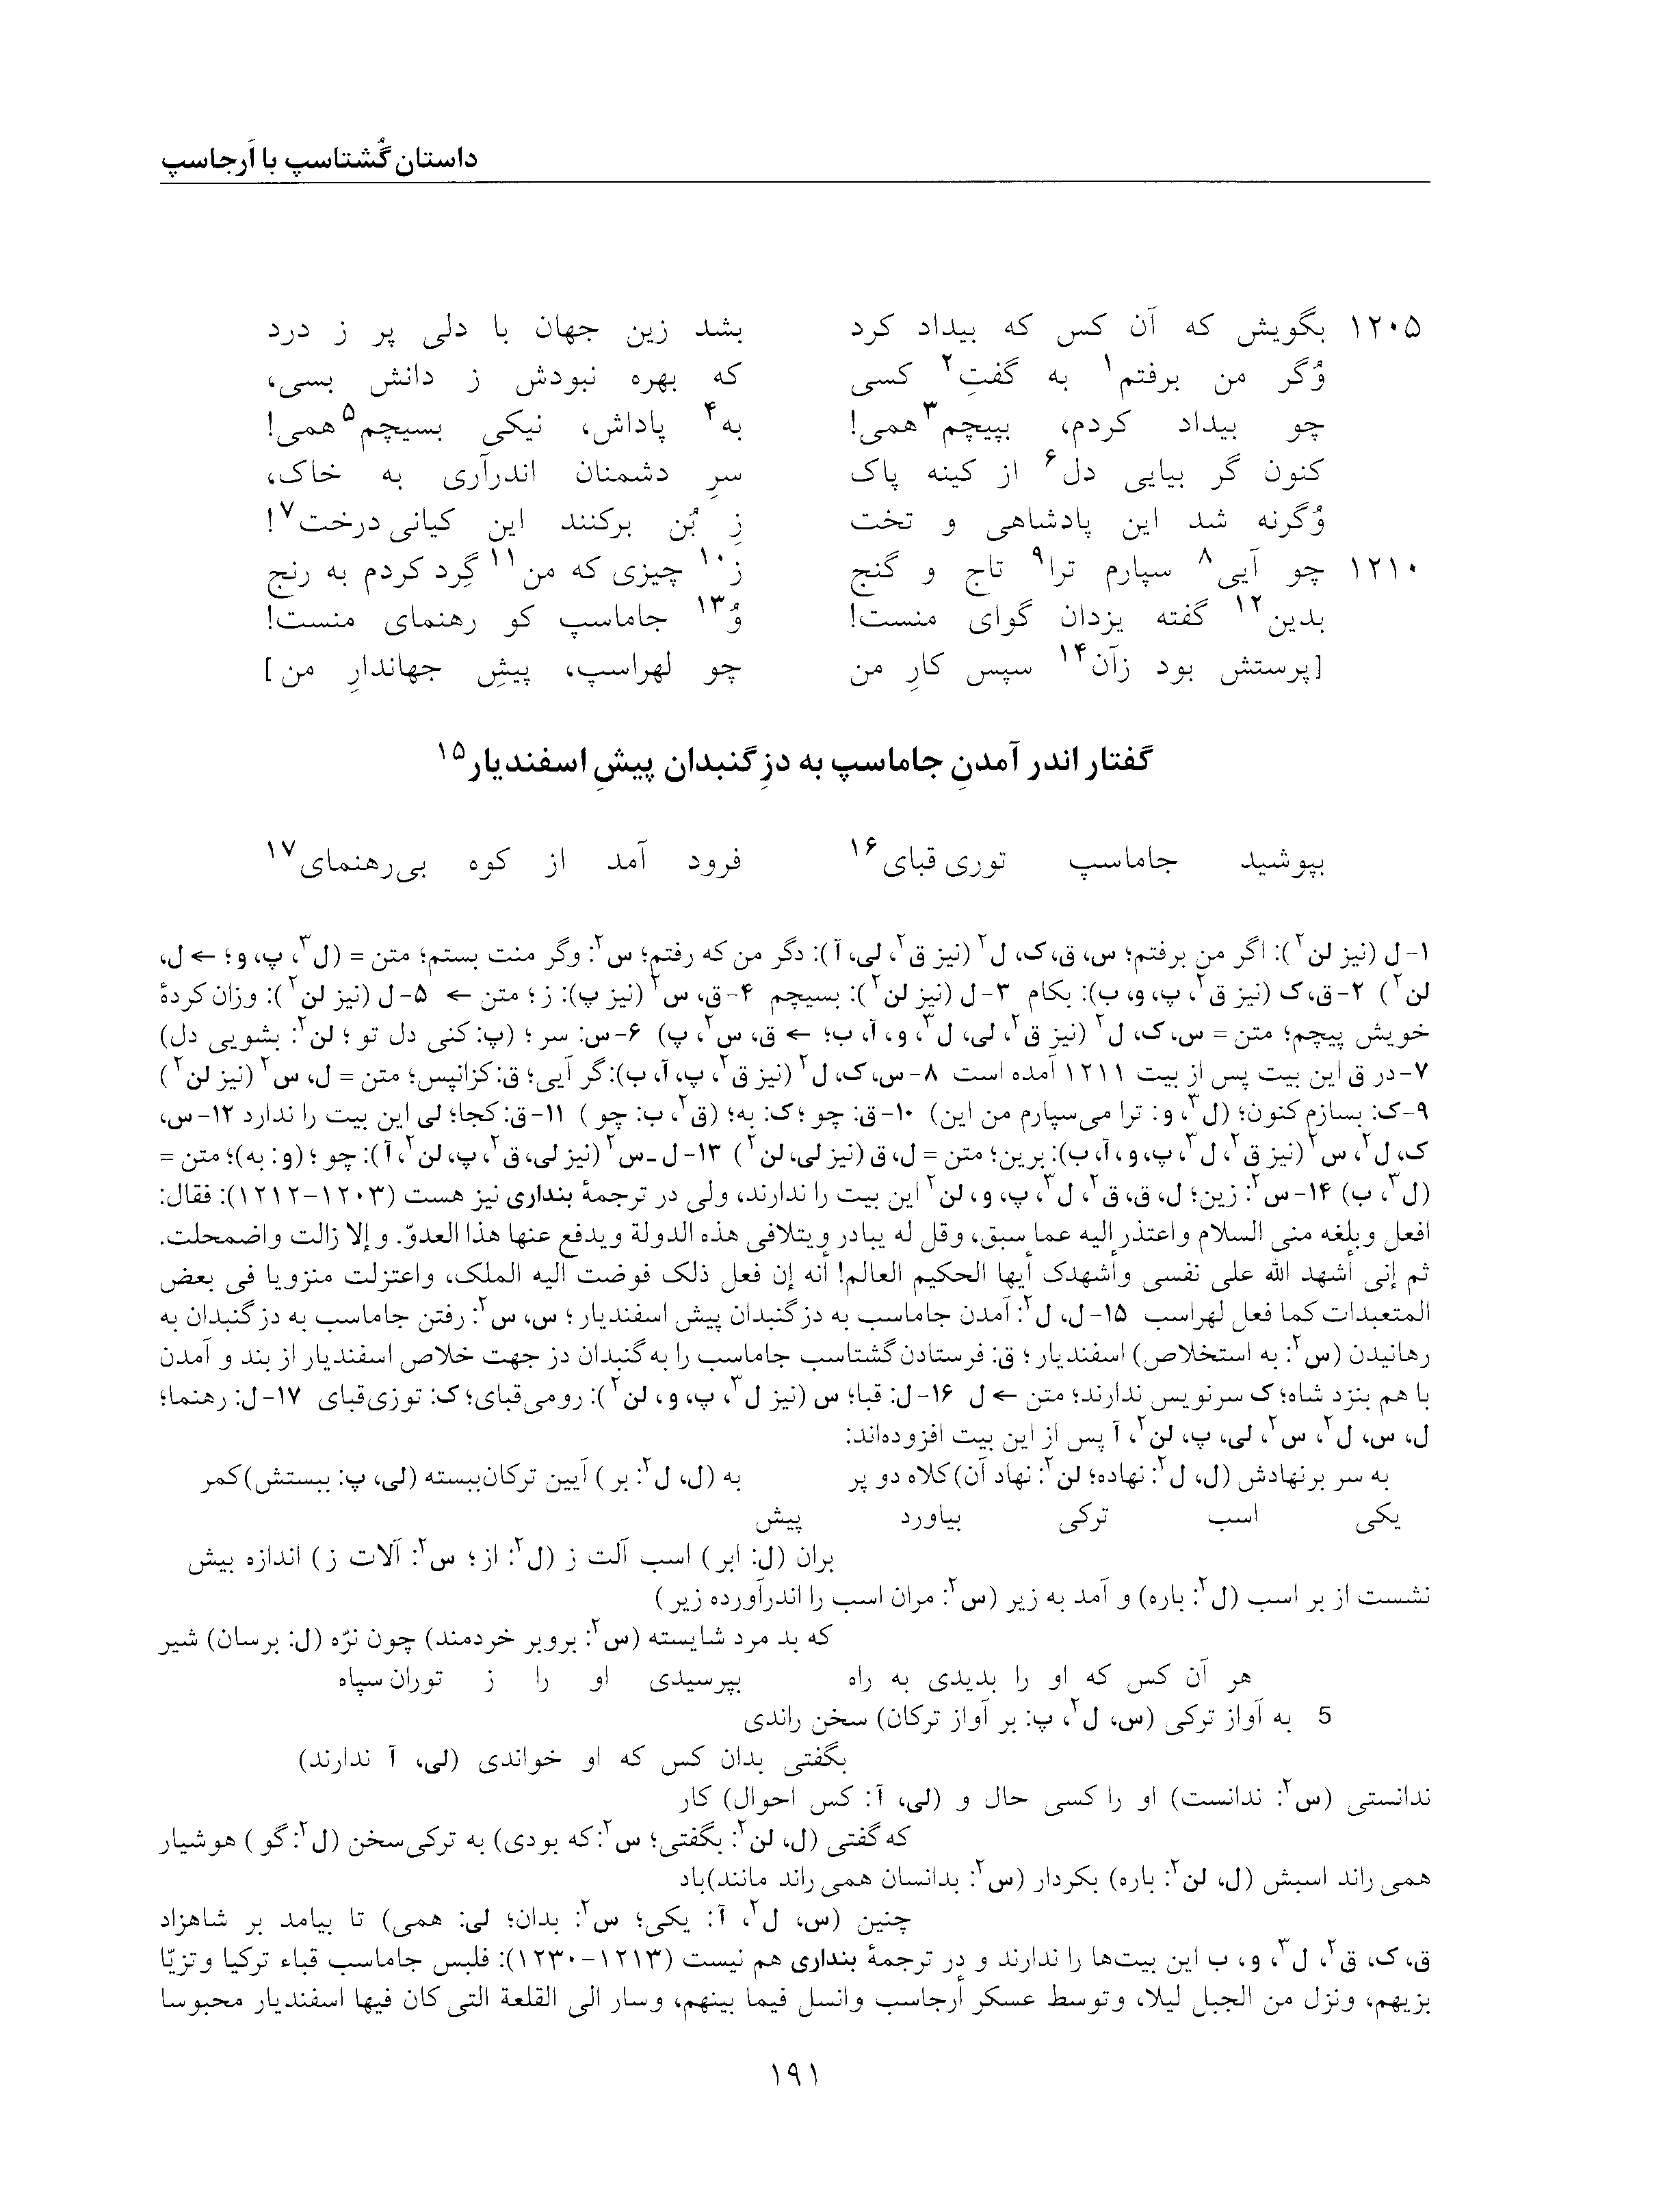 داستان گُشتاسپ با اَرجاسپ
۱۲۰۵ بگویش که آن کس که بیداد کرد بشد زین جهان با دلی پر ز درد
وُگر من برفتم۱ به گفتِ۲ کسی که بهره نبودش ز دانش بسی،
چو بیداد کردم، بپیچم۳ همی! به۴ پاداش، نیکی بسیچم۵ همی!
کنون گر بیایی دل۶ از کینه پاک سرِ دشمنان اندرآری به خاک،
وُگرنه شد این پادشاهی و تخت زِ بُن برکنند این کیانی درخت۷!
۱۲۱۰ چو آیی۸ سپارم ترا۹ تاج و گنج ز۱۰ چیزی که من۱۱ گِرد کردم به رنج
بدین۱۲ گفته یزدان گوای منست! وُ۱۳ جاماسپ کو رهنمای منست!
[پرستش بود زآن۱۴ سپس کارِ من چو لهراسپ، پیشِ جهاندارِ من]
گفتار اندر آمدنِ جاماسپ به دزِ گنبدان پیشِ اسفندیار۱۵
بپوشید جاماسپ توری قبای۱۶ فرود آمد از کوه بی‌رهنمای۱۷
۱- ل (نیز لن۲): اگر من برفتم؛ س، ق، ک، ل۲ (نیز ق۲، لی، آ): دگر من که رفتم؛ س۲: وگر منت بستم؛ متن = (ل۳، پ، و؛ ← ل،
لن۲) ۲- ق، ک (نیز ق۲، پ، و، ب): بکام ۳- ل (نیز لن۲): بسیچم ۴- ق، س۲ (نیز پ): ز؛ متن ← ۵- ل (نیز لن۲): وزان کردهٔ
خویش پیچم؛ متن = س، ک، ل۲ (نیز ق۲، لی، ل۳، و، آ، ب؛ ← ق، س۲، پ) ۶- س: سر؛ (پ: کنی دل تو؛ لن۲: بشویی دل)
۷- در ق این بیت پس از بیت ۱۲۱۱ آمده است ۸- س، ک، ل۲ (نیز ق۲، پ، آ، ب): گر آیی؛ ق: کزانپس؛ متن = ل، س۲ (نیز لن۲)
۹- ک: بسازم کنون؛ (ل۳، و: ترا می‌سپارم من این) ۱۰- ق: چو؛ ک: به؛ (ق۲، ب: چو) ۱۱- ق: کجا؛ لی این بیت را ندارد ۱۲- س،
ک، ل۲، س۲ (نیز ق۲، ل۳، پ، و، آ، ب): برین؛ متن = ل، ق (نیز لی، لن۲) ۱۳- ل ـ س۲ (نیز لی، ق۲، پ، لن۲، آ): چو؛ (و: به)؛ متن =
(ل۳، ب) ۱۴- س۲: زین؛ ل، ق، ق۲، ل۳، پ، و، لن۲ این بیت را ندارند، ولی در ترجمهٔ بنداری نیز هست (۱۲۰۳-۱۲۱۲): فقال:
افعل وبلغه منی السلام واعتذر إلیه عما سبق، وقل له یبادر ویتلافی هذه الدولة ویدفع عنها هذا العدوّ. وإلا زالت واضمحلت.
ثم إنی أشهد الله علی نفسی وأشهدک أیها الحکیم العالم! أنه إن فعل ذلک فوضت الیه الملک، واعتزلت منزویا فی بعض
المتعبدات کما فعل لهراسب ۱۵- ل، ل۲: آمدن جاماسب به دز گنبدان پیش اسفندیار؛ س، س۲: رفتن جاماسب به دز گنبدان به
رهانیدن (س۲: به استخلاص) اسفندیار؛ ق: فرستادن گشتاسب جاماسب را به گنبدان دز جهت خلاص اسفندیار از بند و آمدن
با هم بنزد شاه؛ ک سرنویس ندارند؛ متن ← ل ۱۶- ل: قبا؛ س (نیز ل۳، پ، و، لن۲): رومی قبای؛ ک: توزی قبای ۱۷- ل: رهنما؛
ل، س، ل۲، س۲، لی، پ، لن۲، آ پس از این بیت افزوده‌اند:
به سر برنهادش (ل، ل۲: نهاده؛ لن۲: نهاد آن) کلاه دو پر به (ل، ل۲: بر) آیین ترکان ببسته (لی، پ: ببستش) کمر
یکی اسب ترکی بیاورد پیش
بران (ل: ابر) اسب آلت ز (ل۲: از؛ س۲: آلات ز) اندازه بیش
نشست از بر اسب (ل۲: باره) و آمد به زیر (س۲: مران اسب را اندرآورده زیر)
که بد مرد شایسته (س۲: بروبر خردمند) چون نرّه (ل: برسان) شیر
هر آن کس که او را بدیدی به راه بپرسیدی او را ز توران سپاه
5 به آواز ترکی (س، ل۲، پ: بر آواز ترکان) سخن راندی
بگفتی بدان کس که او خواندی (لی، آ ندارند)
ندانستی (س۲: ندانست) او را کسی حال و (لی، آ: کس احوال) کار
که گفتی (ل، لن۲: بگفتی؛ س۲: که بودی) به ترکی سخن (ل۲: گو) هوشیار
همی راند اسبش (ل، لن۲: باره) بکردار (س۲: بدانسان همی راند مانند) باد
چنین (س، ل۲، آ: یکی؛ س۲: بدان؛ لی: همی) تا بیامد بر شاهزاد
ق، ک، ق۲، ل۳، و، ب این بیت‌ها را ندارند و در ترجمهٔ بنداری هم نیست (۱۲۱۳-۱۲۳۰): فلبس جاماسب قباء ترکیا وتزیّا
بزیهم، ونزل من الجبل لیلا، وتوسط عسکر أرجاسب وانسل فیما بینهم، وسار الی القلعة التی کان فیها اسفندیار محبوسا
۱۹۱